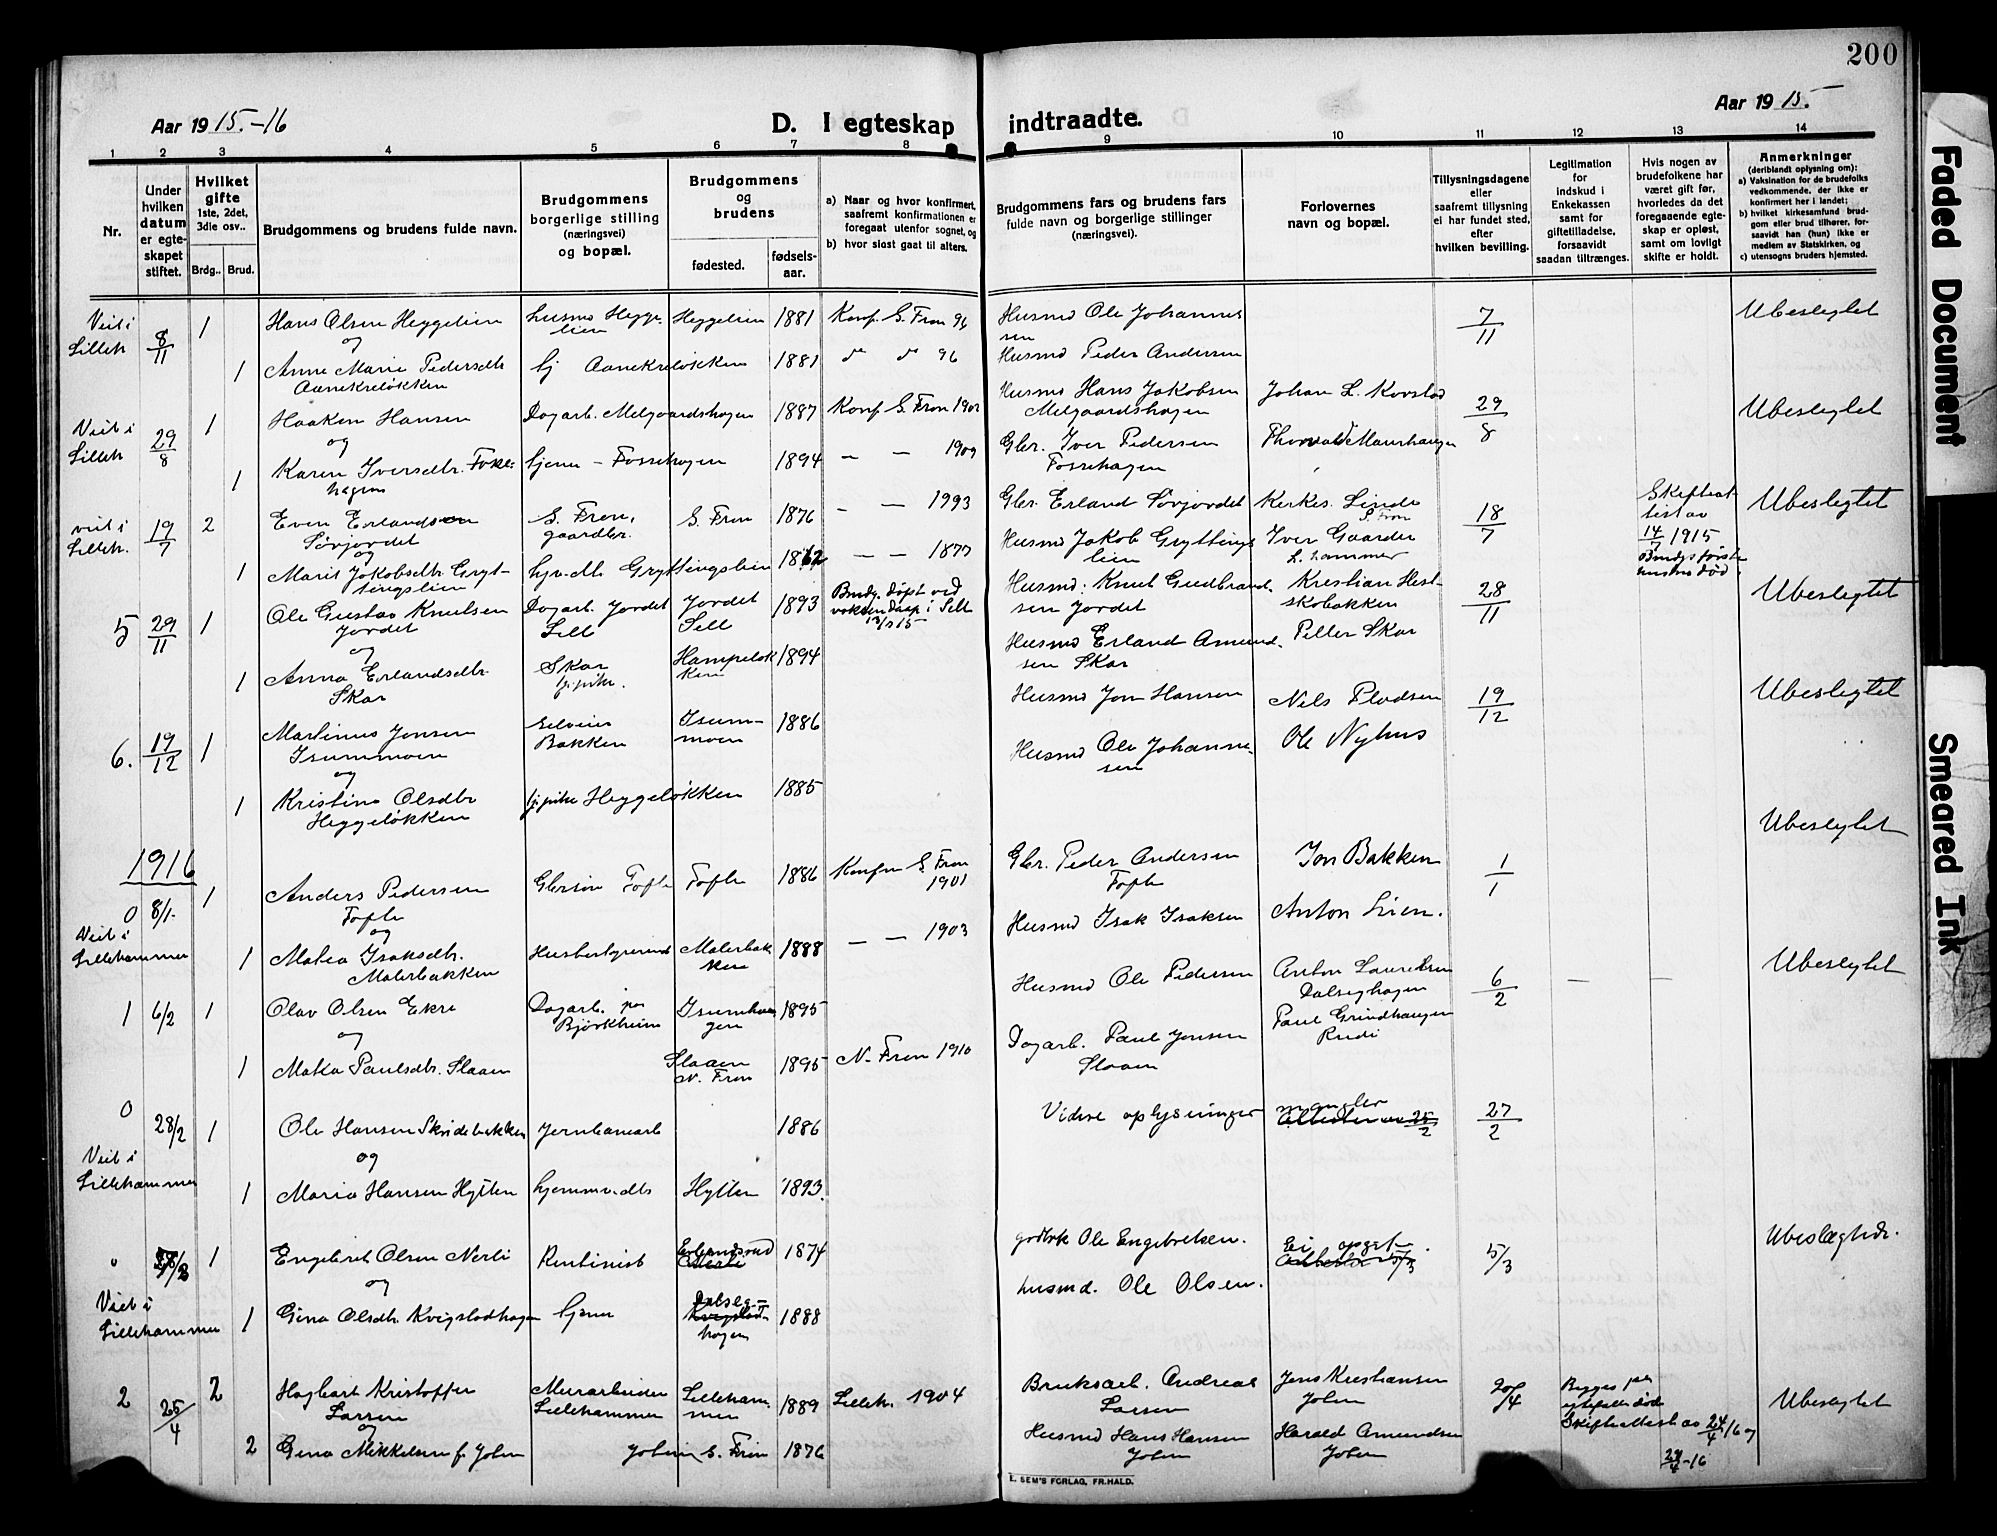 200
Aar 19 15.-16
D. I egteskap
indtraadte.
Aar 19 15.
1 2 3 4 5 6 7 8 9 10 11 12 13 14
Nr.
Under hvilken datum er egteskapet stiftet.
Hvilket gifte 1ste, 2det, 3die osv..
Brdg.. Brud.
Brudgommens og brudens fulde navn.
Brudgommens borgerlige stilling (næringsvei) og bopæl.
Brudgommens og brudens
fødested. fødselsaar.
a) Naar og hvor konfirmert, saafremt konfirmationen er foregaat utenfor sognet, og
b) hvor sidst gaat til alters.
Brudgommens fars og brudens fars fulde navn og borgerlige stillinger (næringsvei).
Forlovernes navn og bopæl.
Tillysningsdagene eller saafremt tillysning ei har fundet sted, efter hvilken bevilling.
Legitimation for indskud i Enkekassen samt for giftetilladelse, forsaavidt saadan tiltrænges.
Hvis nogen av brudefolkene har været gift før, hvorledes da det foregaaende egteskap er opløst, samt om lovligt skifte er holdt.
Anmerkninger (deriblandt oplysning om):
a) Vaksination for de brudefolks vedkommende, der ikke er konfirmert her i landet;
b) hvilket kirkesamfund brudgom eller brud tilhører, forsaavidt han (hun) ikke er medlem av Statskirken, og
c) utensogns bruders hjemsted.
Viet i Lilleh. 8/11 1 Hans Olsen Heggelien Husmd Heggelien Heggelien 1881 Konf. S. Fron 96 Husmd Ole Johannessen 7/11 Ubeslegtet
og
1 Anne Marie Pedersdtr Aanekreløkken hj Aanekreløkken 1881 96 Husmd Peder Andersen
Viet i Lilleh 29/8 1 Haaken Hansen Dagarb. Melgaardshagen 1887 Konf. S. Fron 1902 Husmd Hans Jakobsen Melgaardshagen Johan L. Kovstad 29/8 Ubeslegtet
og
1 Karen Iversdtr. Fossehagen hjeme - Fossehagen 1894 — — 1909 Gbr. Iver Pedersen Fossehagen Thorvald Maurhaugen
viet i Lilleh. 19/7 2 Even Erlandsen Sørjordet S. Fron, gaardbr. S. Fron 1876 — — 1993 Gbr. Erland Sørjordet Kirkes. Linde S. Fron 18/7 Skifteattest av 14/7 1915 Brudgs første hustru død. Ubeslegtet
og
1 Marit Jakobsdtr Gryttingslien hjv. dtr Gryttingslien 1862 — — 1877 Husmd Jakob Gryttingslien Iver Gaarder L.hammer
5 29/11 1 Ole Gustav Knutsen Jordet Dagarb. Jordet Sell Jordet Sell 1893 Brudg. døpt ved voksen daap i Sell Husmd: Knut Gudbrandsen Jordet Kristian Hestskobakken 28/11 Ubeslegtet
og
1 Anna Erlandsdtr Skar Skar hj.pike. Hampeløkken 1894 Husmd Erland Amundsen Skar Petter Skar
6. 19/12 1 Martinus Jonsen Isummoen Selveier Bakken Isummoen 1886 Husmd Jon Hansen Nils Pladsen 19/12 Ubeslegtet
og
1 Kristina Olsdtr Heggeløkken hj.pike Heggeløkken 1885 Husmd Ole Johannessen Ole Nyhus
1916
0 8/1. Viet i Lillehammer 1 Anders Pedersen Tofte Gbrsøn Tofte Tofte 1886 Konfm S Fron 1901 Gbr. Peder Andersen Tofte Jon Bakken 1/1 Ubeslegtet
og
1 Matea Isaksdtr. Malerbakken Husbestyrerinde Malerbakken 1888 — — 1903 Husmd Isak Isaksen Anton Lien.
1 6/2 1 Olav Olsen Ekre Dagarb. paa Bjørkheim Isumhaugen 1895 Husmd Ole Pedersen Anton Lauritsen Dalseghagen 6/2 — — Ubeslegtet
og
1 Matea Paulsdtr. Slaaen Slaaen N. Fron 1895 N. Fron 1910 Dagarb. Paul Jonsen Slaaen Paul Grindhaugen Rudi
0 28/2 Viet i Lillehammer 1 Ole Hansen Skridebakken Jernbanearb 1886 Videre oplysninger mangler 27/2
og
1 Maria Hansen Hytten hjemmev. dtr Hytten 1893.
0 Viet i Lillehammer 1 Engebret Olsen Nerli Rentenist Erlandsrud 1874 gaardbr Ole Engebretsen. Ei opgit. 5/3 Ubeslægtede.
og
1 Gina Olsdtr. Kvigstadhagen hjeme Dalseghagen 1888 husmd. Ole Olsen.
2 25/4 2 Hagbart Kristoffer Larsen Murarbeider Lillehammer Lillehammer 1889 Lilleh. 1904 Bruksarb. Andreas Larsen Jens Kristiansen Jolen 20/4 Begges før egtefelle døde Skifteattest av 24/4 16 og 24/4-16 Ubeslegtet
og
2 Gina Mikkelsen f. Jolen Jolen S. Fron 1876 Husmd Hans Hansen Jolen Harald Amundsen Jolen
E. SEM'S FORLAG, FR.HALD.
Faded Document
Smeared Ink